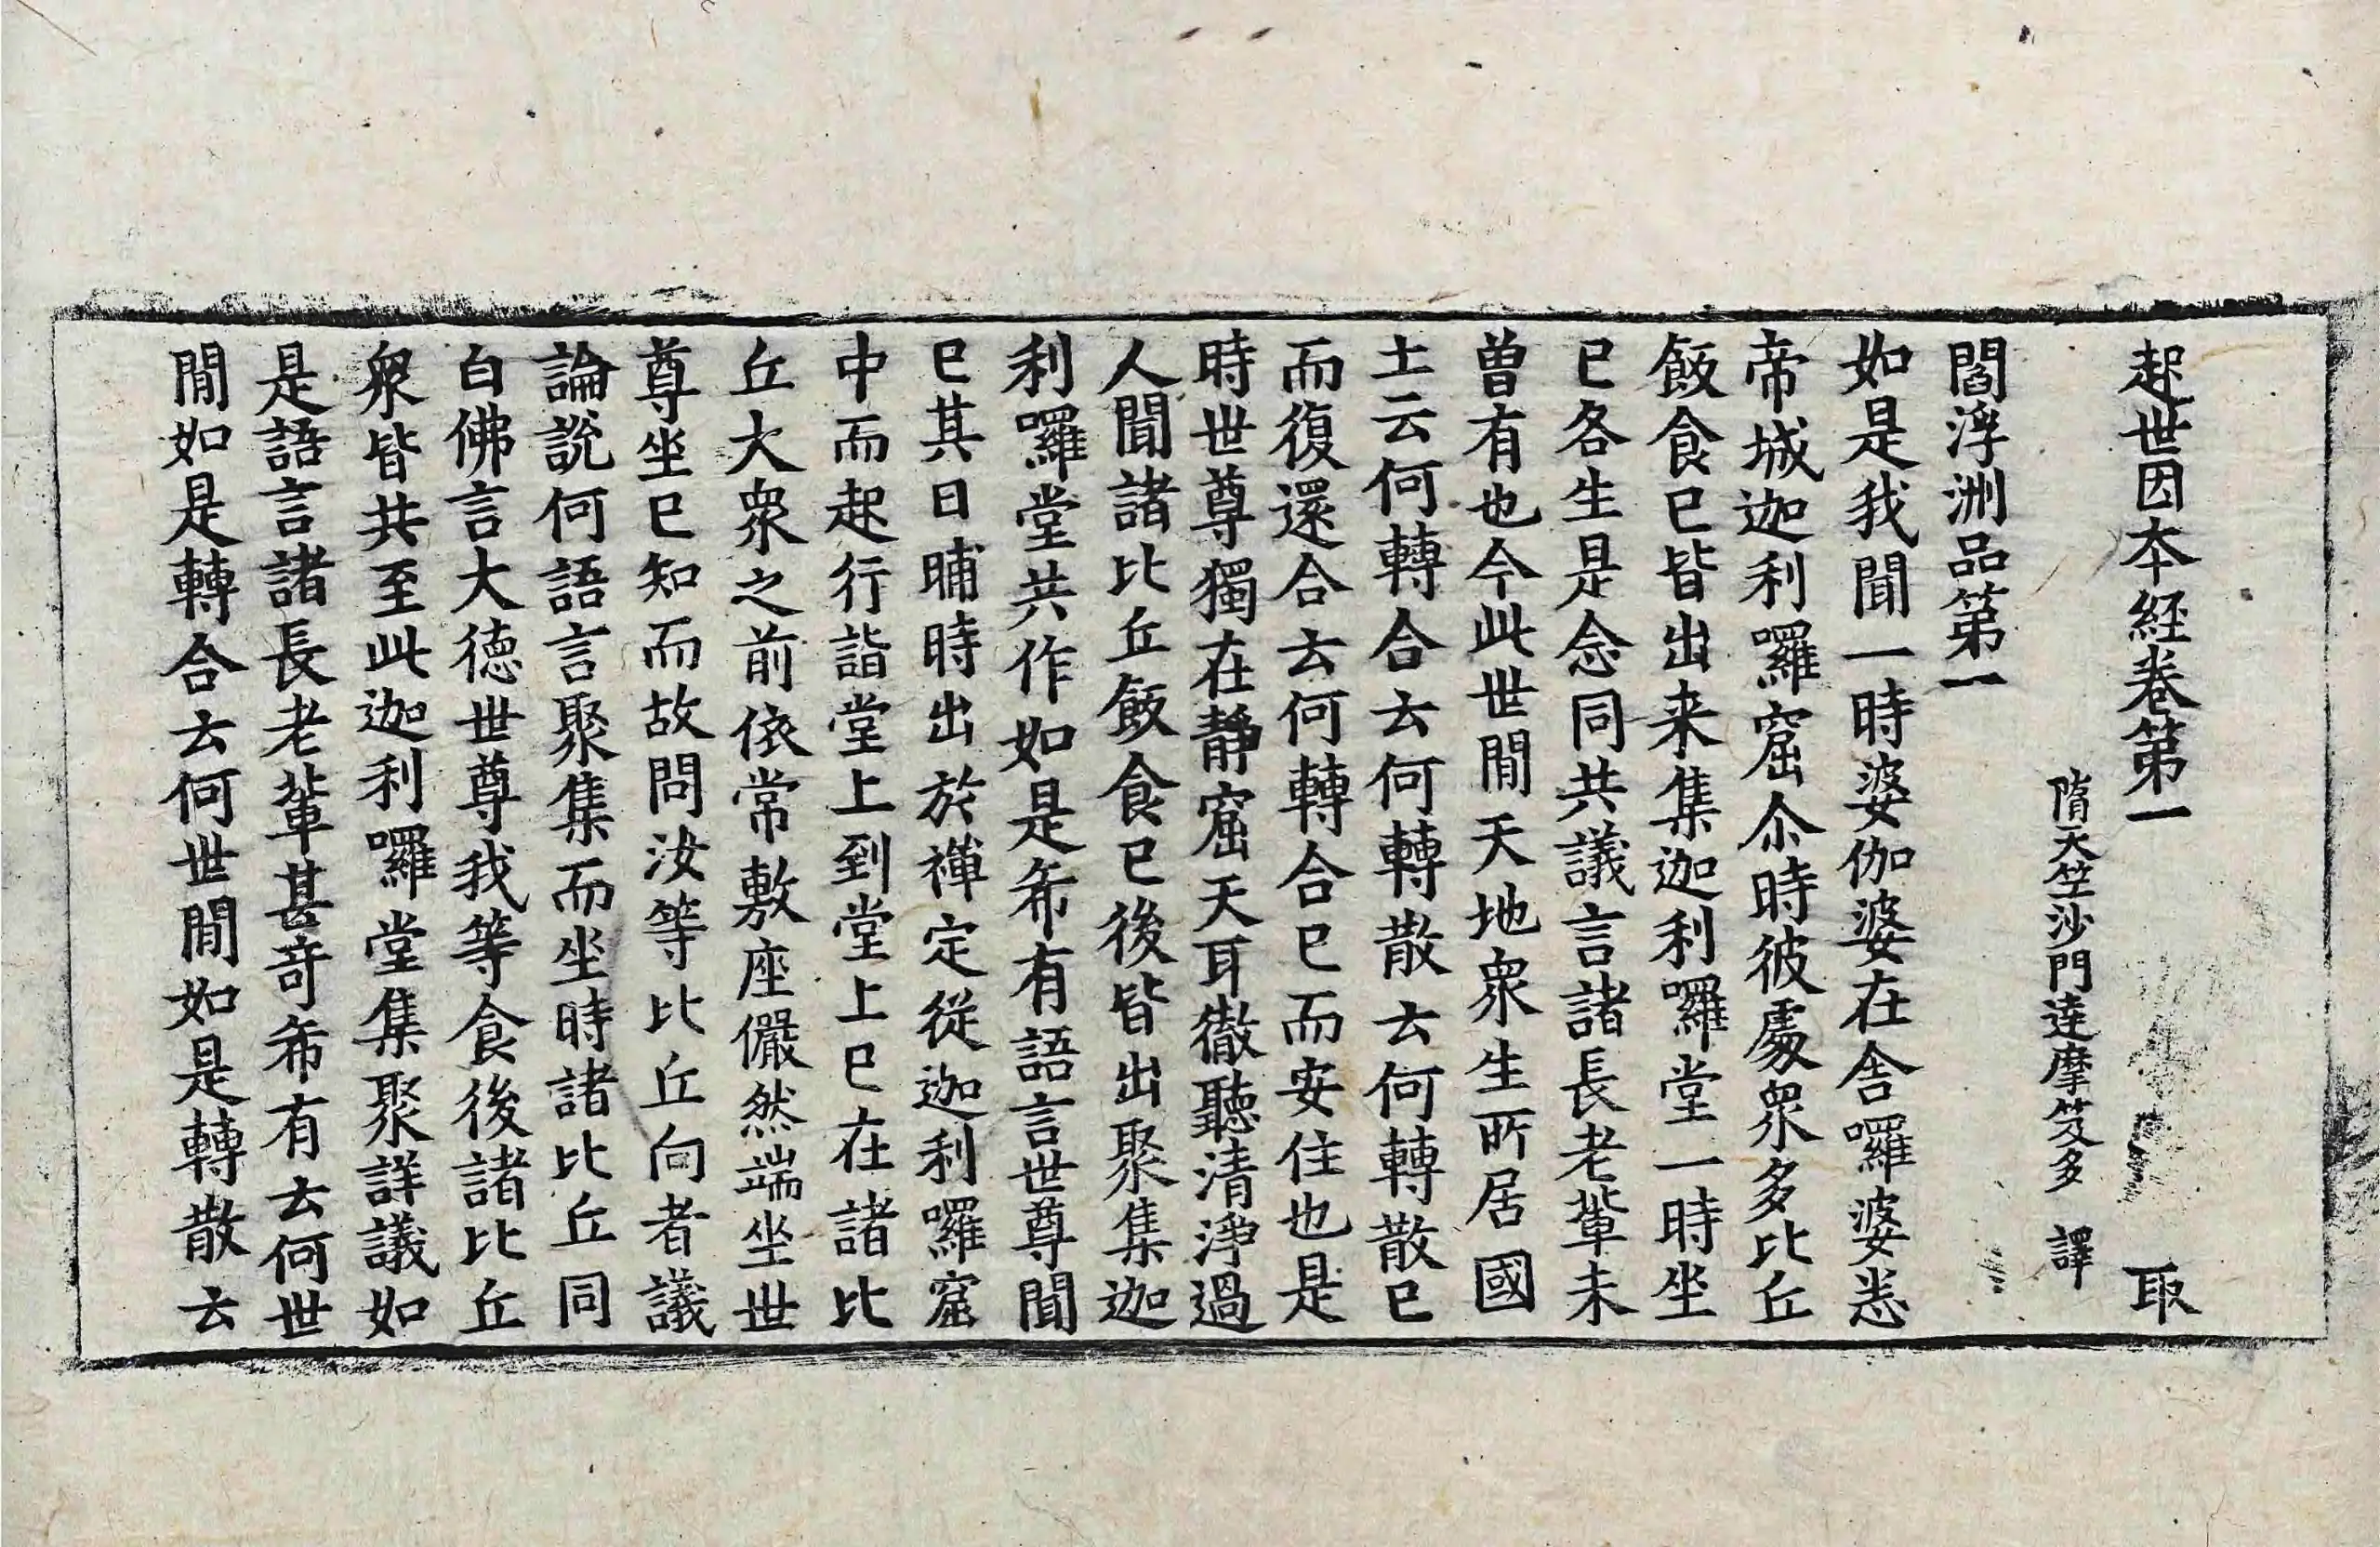 起世因本経卷第一 取
隋天竺沙門達摩笈多 譯
閻浮洲品第一
如是我聞一時婆伽婆在舎囉婆悉
帝城迦利囉窟尒時彼處衆多比丘
飯食已皆出来集迦利囉堂一時坐
已各生是念同共議言諸長老輩未
曽有也今此世閒天地衆生所居國
土云何轉合去何轉散去何轉散已
而復還合去何轉合已而安住也是
時世尊獨在静窟天耳徹聽清淨過
人聞諸比丘飯食已後皆出聚集迦
利囉堂共作如是希有語言世尊聞
已其日晡時出於禅定從迦利囉窟
中而起行詣堂上到堂上已在諸比
丘大衆之前依常敷座儼然端坐世
尊坐已知而故問汝等比丘向者議
論説何語言聚集而坐時諸比丘同
白佛言大徳世尊我等食後諸比丘
衆皆共至此迦利囉堂集聚詳議如
是語言諸長老輩甚竒希有去何世
閒如是轉合去何世閒如是轉散去